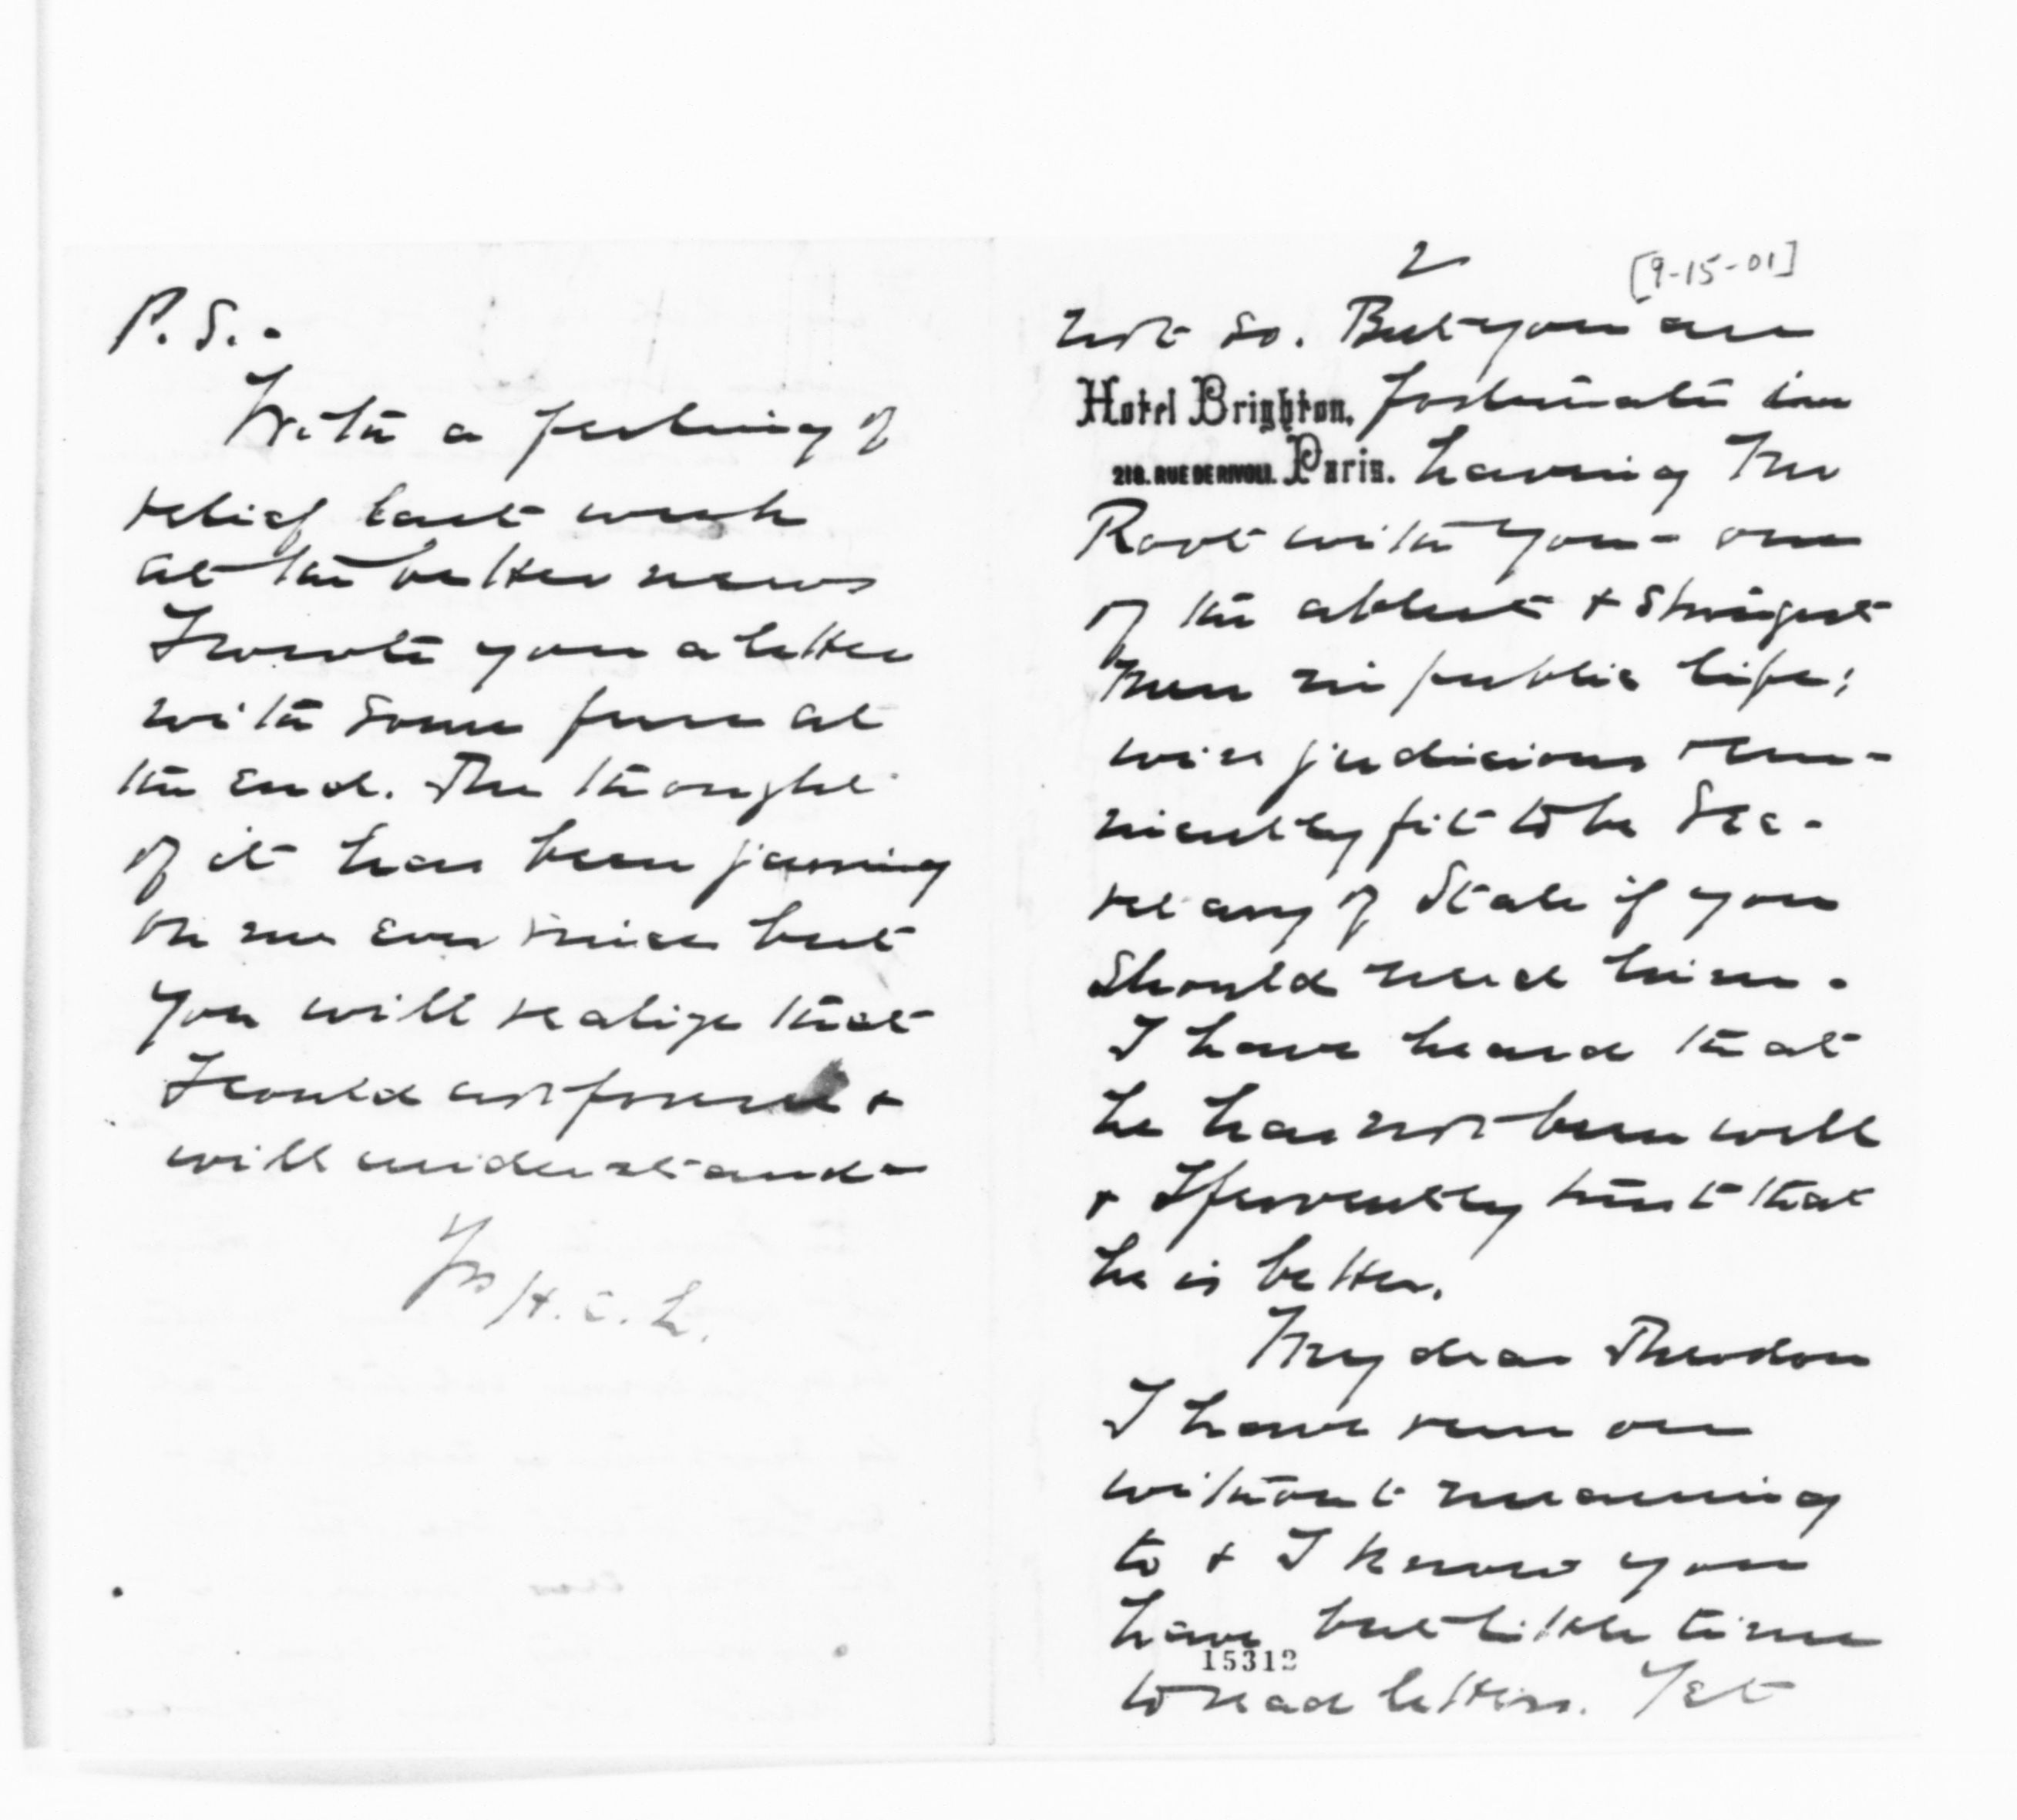 P. S. -
With a feeling of
relief last week
at the better news
I wrote you a letter
with some fun at
the end. The thought
of it has been jarring
on me ever since but
you will realize that
I could not foresee &
will understand -
Yrs H. C. L.
2
[9-15-01]
not so. But you are
Hotel Brighton, fortunate in
218. RUE DE RIVOLI. Paris. having Mr
Root with you - one
of the ablest & strongest
men in public life;
wise judicious & emi-
nently fit to be Sec-
retary of State if you
should need him.
I have heard that
he has not been well
& I fervently trust that
he is better.
My dear Theodore
I have run on
without meaning
to & I know you
have but little time
15312
to read letters. Yet